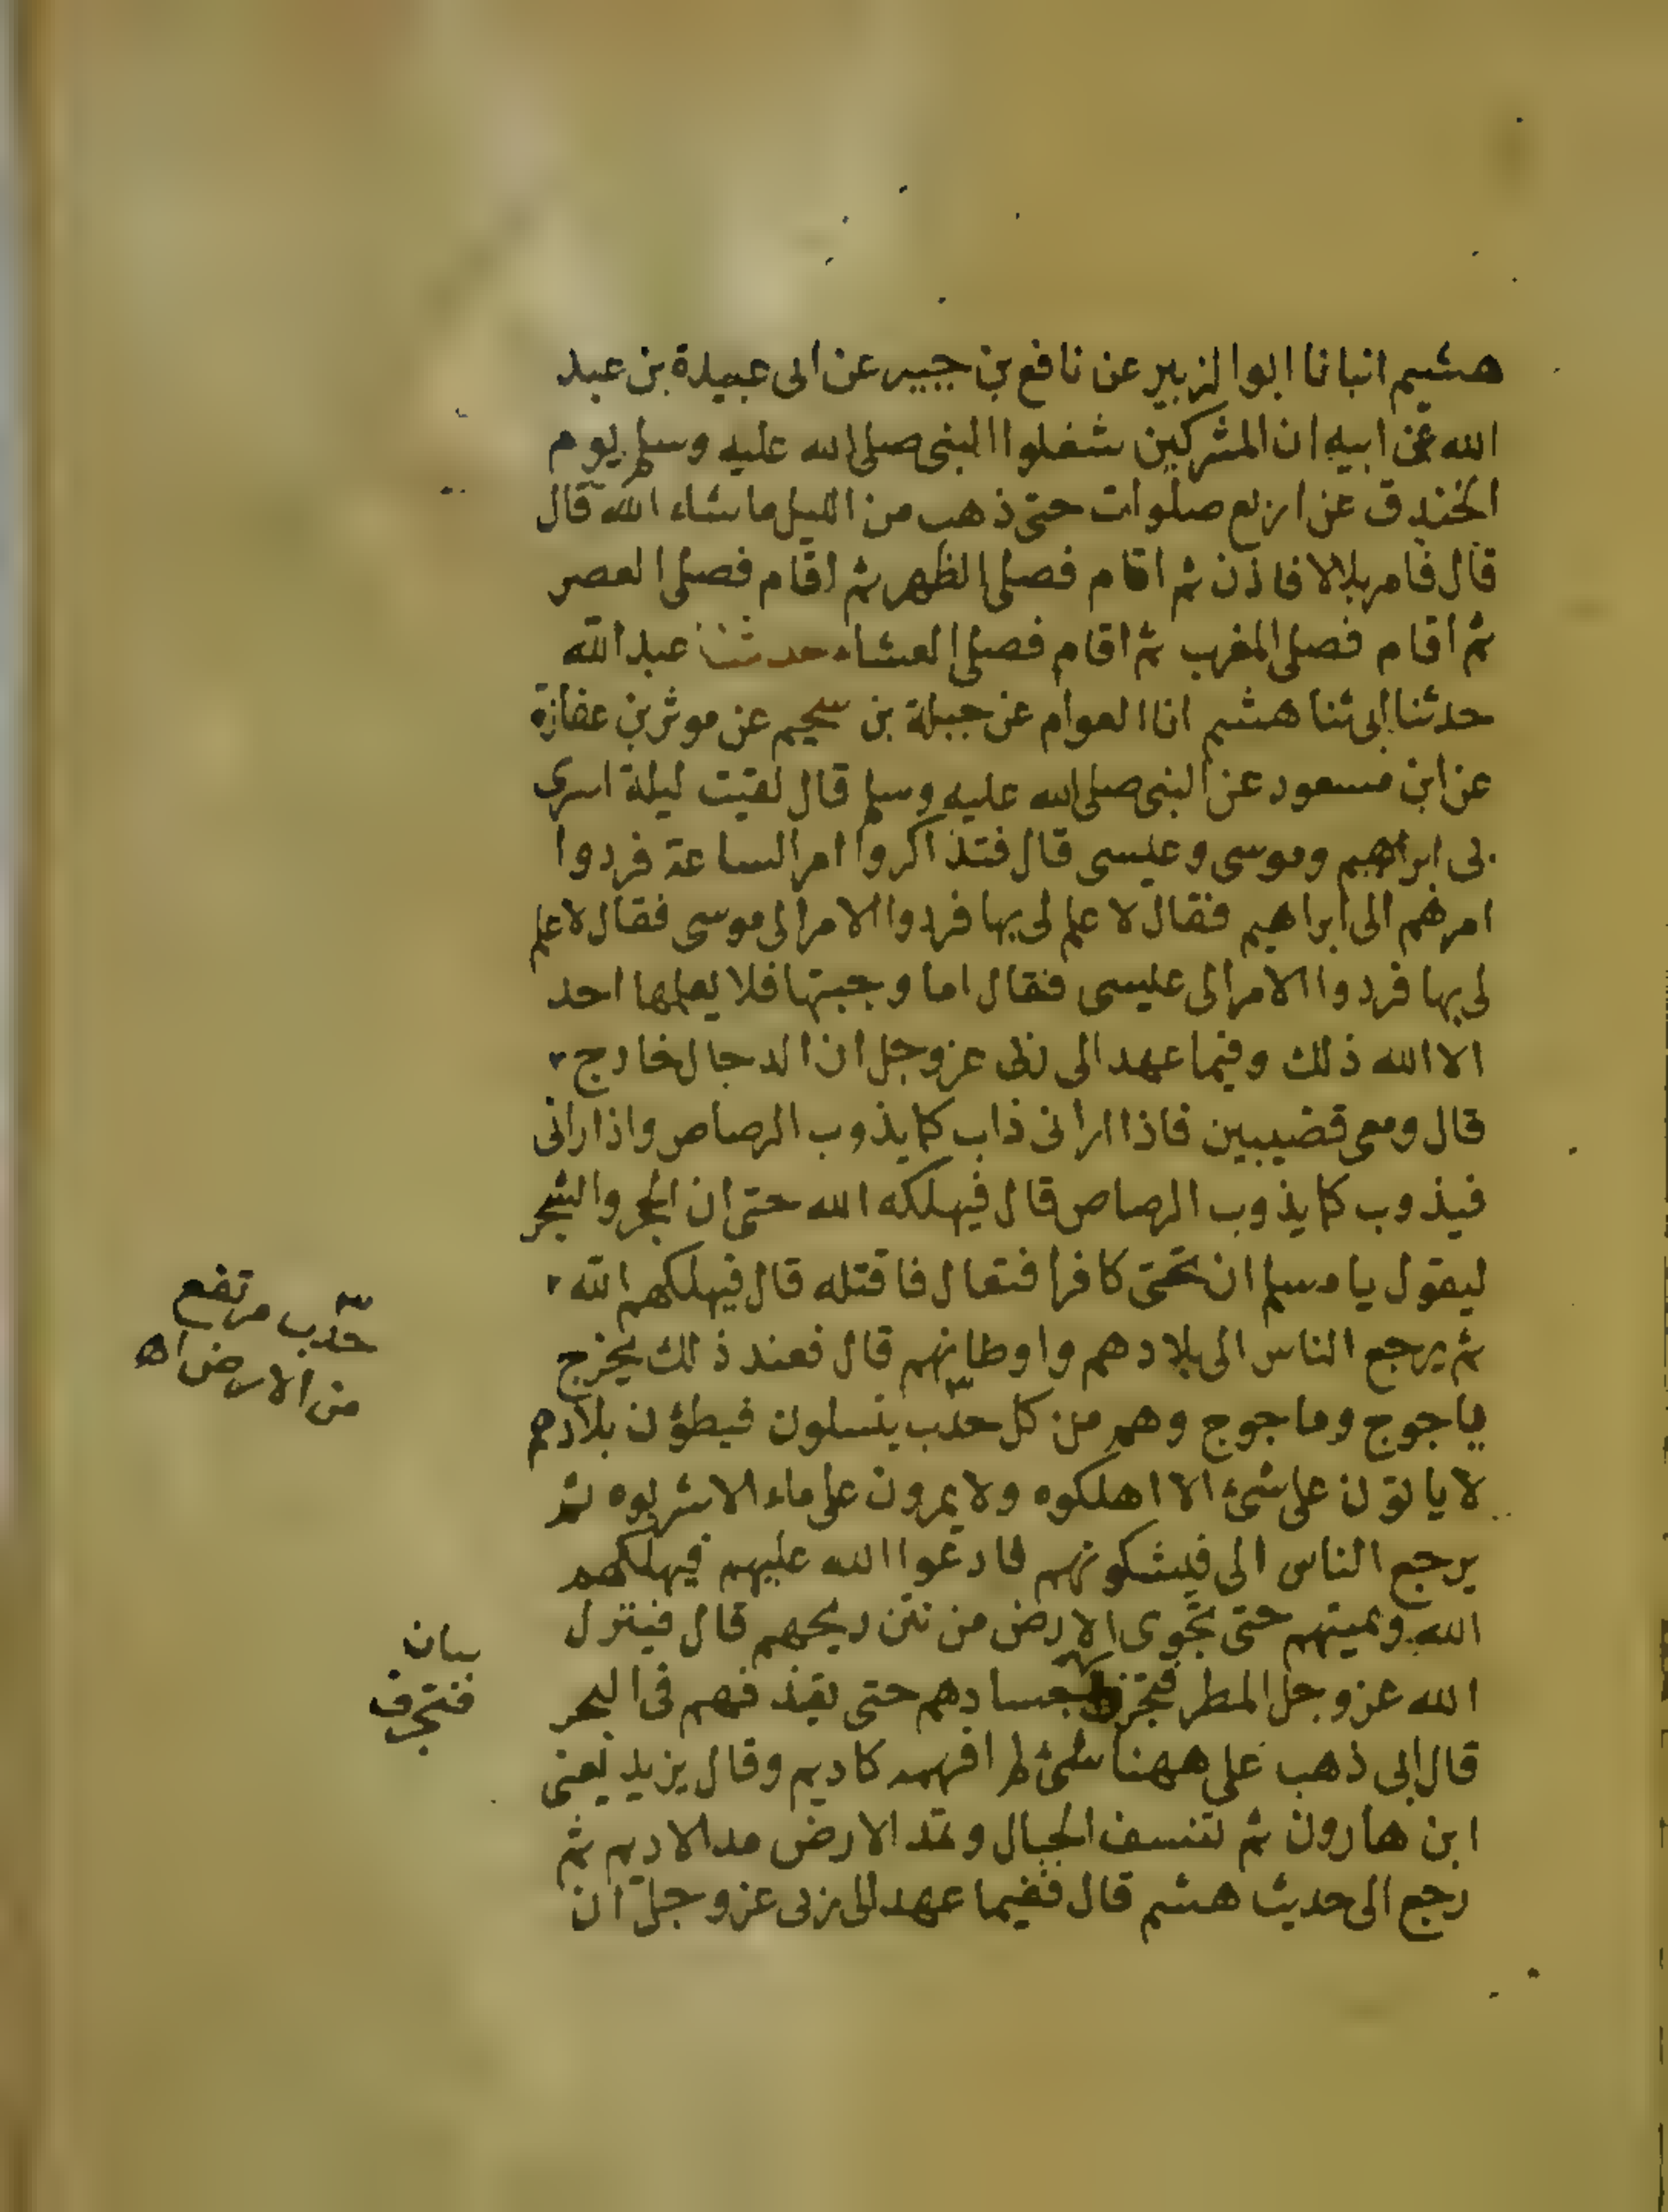 هشيم انبانا ابوالزبير عن نافع بن جبير عن ابى عبيدة بن عبد
الله عن ابيه ان المشركين شغلوا النبى صلى الله عليه وسلم يوم
الخندق عن اربع صلوات حتى ذهب من الليل ماشاء الله قال
قال فامر بلالا فاذن ثم اقام فصلى الظهر ثم اقام فصلى العصر
ثم اقام فصلى المغرب ثم اقام فصلى العشاء حدثنا عبد الله
حدثنا ابى ثنا هشيم انا العوام عن جبلة بن سحيم عن موثر بن عفازة
عن ابن مسعود عن النبى صلى الله عليه وسلم قال لقيت ليلة اسرى
بى ابراهيم وموسى وعيسى قال فتذاكروا امر الساعة فردوا
امرهم الى ابراهيم فقال لا علم لى بها فردوا الامر الى موسى فقال لا علم
لى بها فردوا الامر الى عيسى فقال اما وجبتها فلا يعلمها احد
الا الله ذلك وفيما عهد الى ربى عزوجل ان الدجال خارج
قال ومعى قضيبين فاذا رانى ذاب كما يذوب الرصاص واذا رانى
فيذوب كما يذوب الرصاص قال فيهلكه الله حتى ان الحجر والشجر
ليقول يا مسلم ان تحتى كافرا فتعال فاقتله قال فيهلكهم الله
ثم يرجع الناس الى بلادهم واوطانهم قال فعند ذلك يخرج
ياجوج وماجوج وهم من كل حدب ينسلون فيطؤن بلادهم
لا ياتون على شئ الا اهلكوه ولا يمرون على ماء الا شربوه ثم
يرجع الناس الى فيشكونهم فادعوا الله عليهم فيهلكهم
الله ويميتهم حتى تجوى الارض من نتن ريحهم قال فينزل
الله عزوجل المطر فتجرف اجسادهم حتى يقذفهم فى البحر
قال ابى ذهب على ههنا شئ لم افهمه كاديم وقال يزيد يعنى
ابن هارون ثم تنسف الجبال وتمد الارض مد الاديم ثم
رجع الى حديث هشيم قال ففيما عهد الى ربى عزوجل ان
حدب مرتفع
من الارض اه
بيان
فتجرف